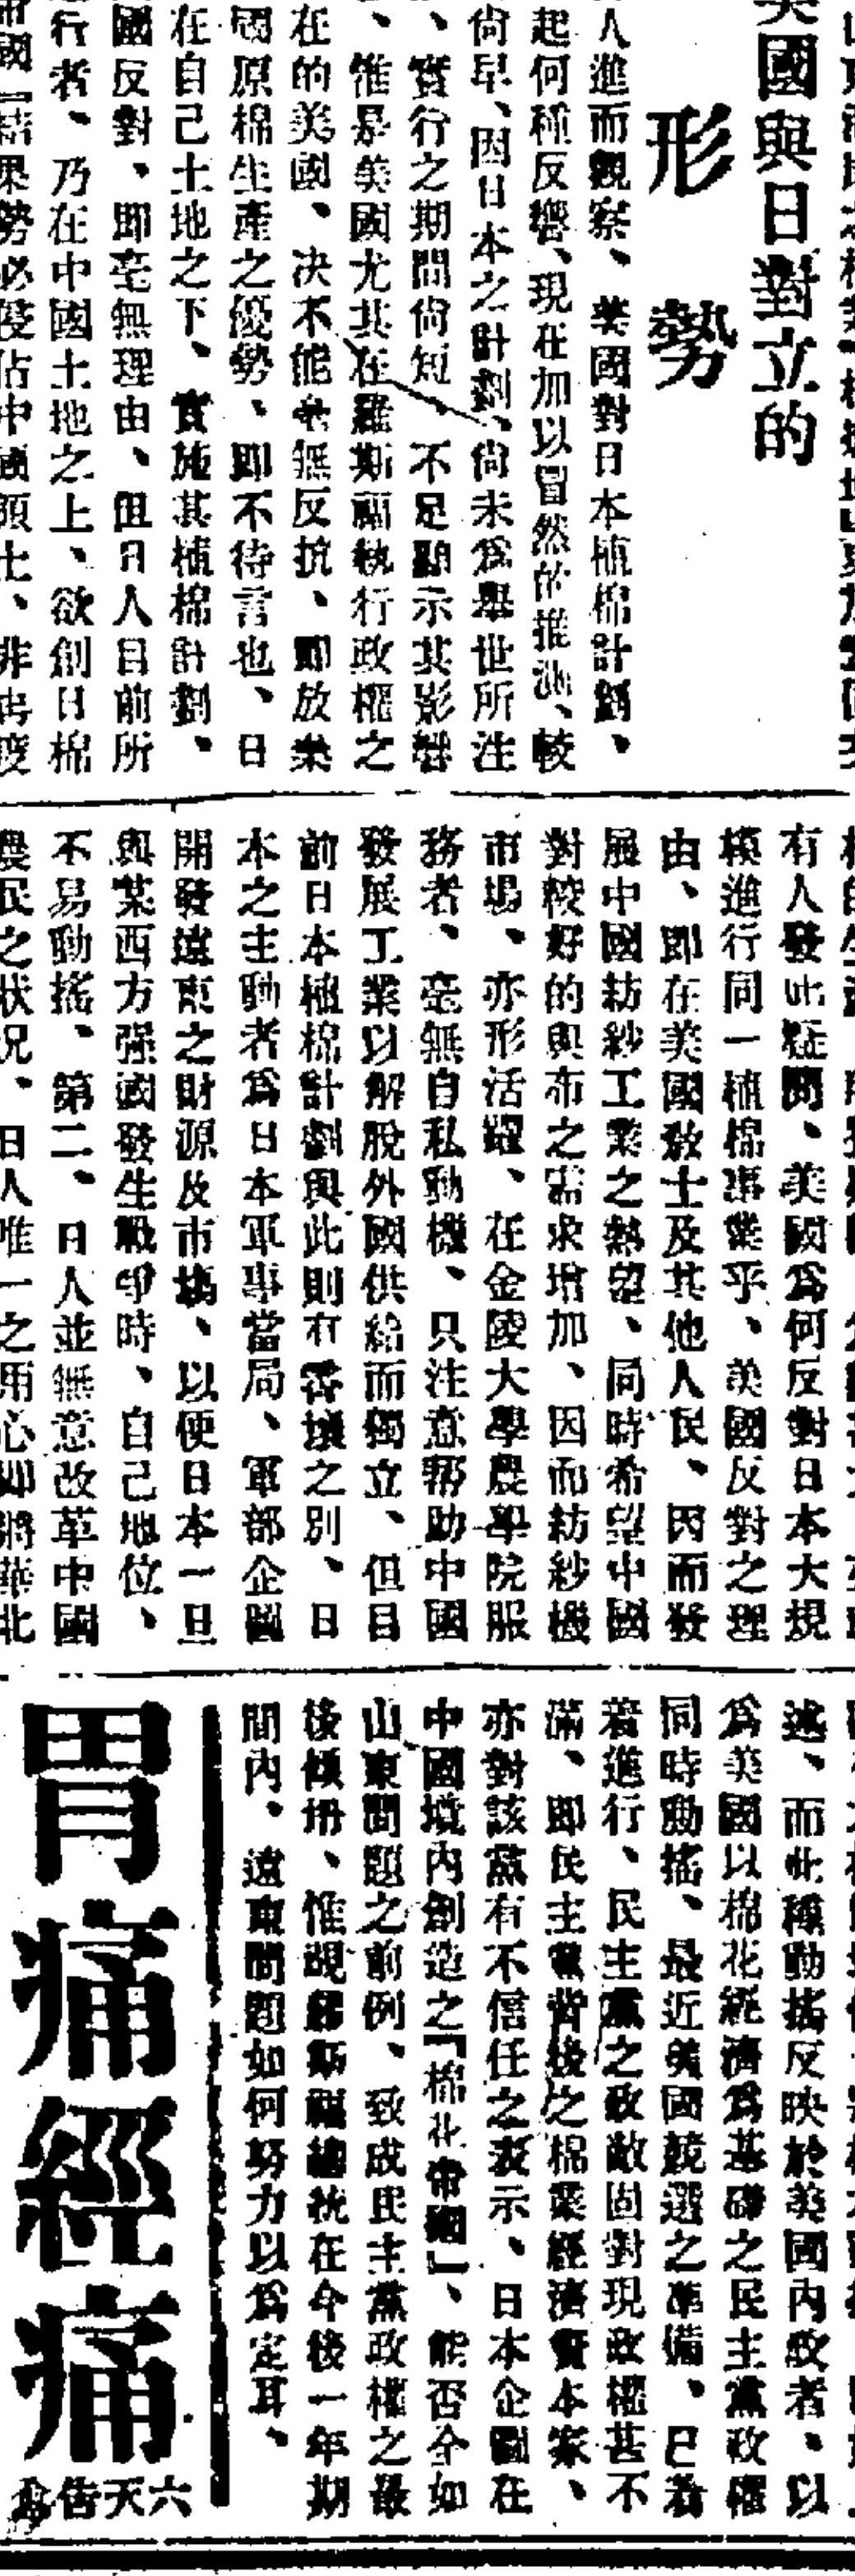 美國與日對立的
形勢
人進而觀察、美國對日本植棉計劃、
起何種反響、現在加以冒然的推測、較
尙早、因日本之計劃、尙未爲舉世所注
、實行之期間尙短、不足顯示其影響
、惟是美國尤其在羅斯福執行政權之
在的美國、決不能毫無反抗、即放棄
國原棉生產之優勢、即不待言也、日
在自己土地之下、實施其植棉計劃、
國反對、即毫無理由、但日人目前所
行者、乃在中國土地之上、欲創日棉
帝國「結果勢必侵佔中國領土、非
有人發此疑問、美國爲何反對日本大規
模進行同一植棉事業乎、美國反對之理
由、即在美國敎士及其他人民、因而發
展中國紡紗工業之熱望、同時希望中國
對較好的與布之需求增加、因而紡紗機
市場、亦形活躍、在金陵大學農學院服
務者、毫無自私動機、只注意幫助中國
發展工業以解脫外國供給而獨立、但目
前日本植棉計劃與此則有霄壤之別、日
本之主動者爲日本軍事當局、軍部企圖
開發遠東之財源及市場、以便日本一旦
與某西方强國發生戰爭時、自己地位、
不易動搖、第二、日人並無意改革中國
農民之狀况、日人唯一之用心即將華北
述、而此種動搖反映於美國內政者、以
爲美國以棉花經濟爲基礎之民主黨政權
同時動搖、最近美國競選之準備、已着
着進行、民主黨之政敵固對現政權甚不
滿、即民主黨背後之棉業經濟資本家、
亦對該黨有不信任之表示、日本企圖在
中國境內創造之「棉花帝國」、能否全如
山東問題之前例、致成民主黨政權之最
後傾坍、惟視羅斯福總統在今後一年期
間內、遠東問題如何努力以爲定耳、
胃痛經痛
六天告